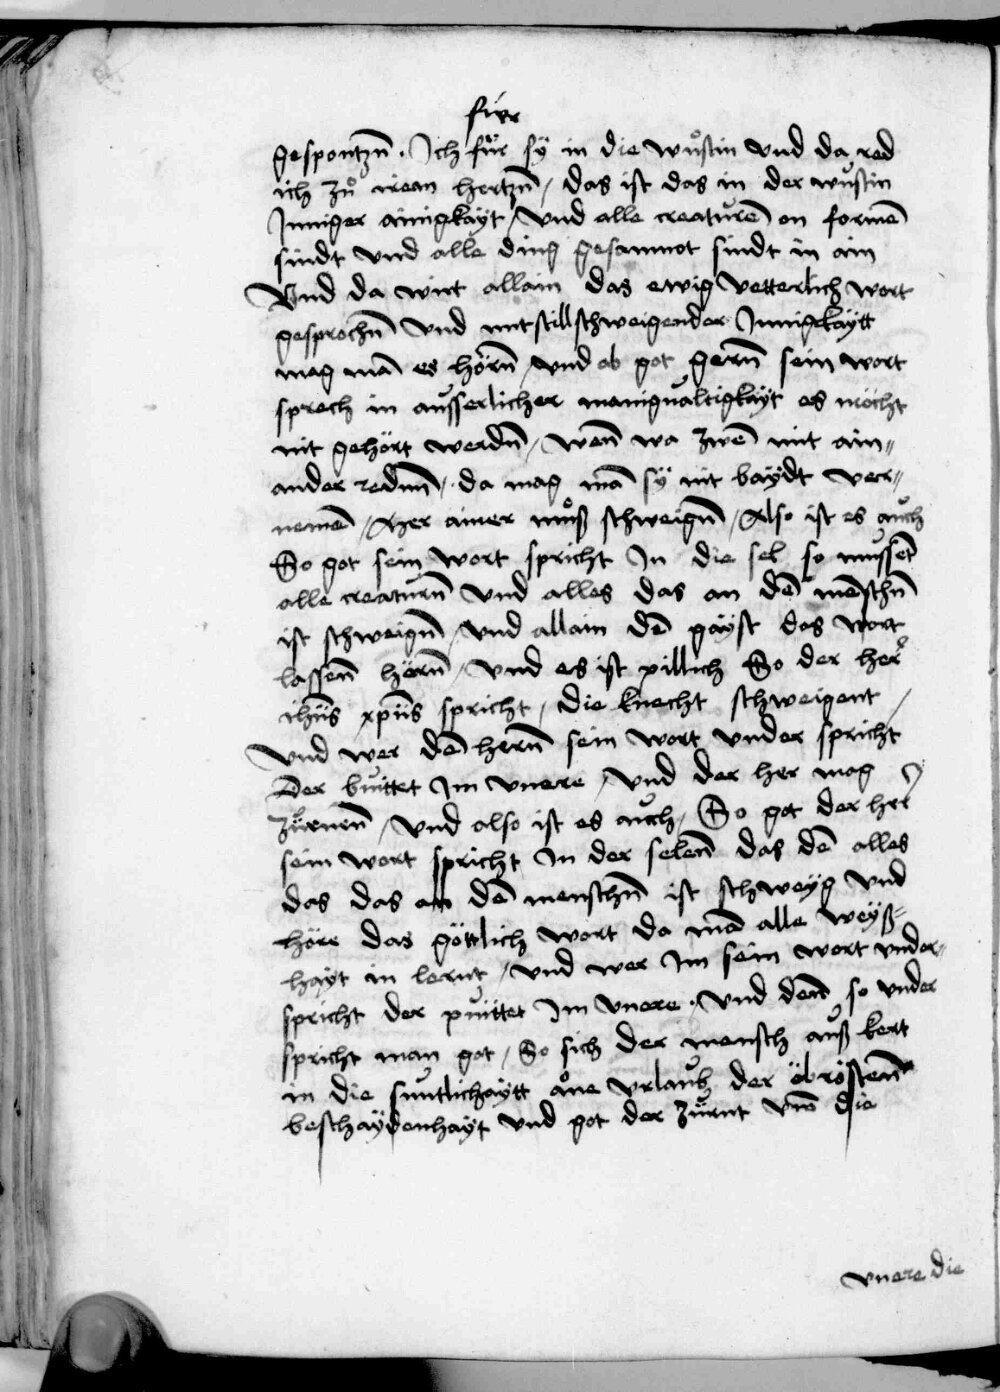 fürr
gespontzn̄ . Ich für sÿ in die wuͦstin vnd da red
ich zuͦ irean hertzn̄ / das ist das in der wustin
Jnniger ainigkaÿt / vnd alle creaturē on formē
sindt vnd alle ding gesammot sindt in ain
Vnd da wirt allain das ewig vetterlich wort
gesprochn̄ vnd mit stillschweigender Jnnigkaÿtt
mag mā es hörn̄ / vnd ob got gern̄ sein wort
sprech in ausserlicher manigualtigkaÿt es möcht
nit gehört werdn̄ / wen̄ wa zwē mit ain-
ander redn̄ / da mag mā sÿ nit baÿdt ver-
nemē / Aber ainer muͦß schweign̄ / Also ist es auch
So got sein wort spricht Jn die sel so mussēt
alle creaturn̄ vnd alles das an dē mēschn̄
ist schweign̄ / vnd allain dē gaÿst das wort
lassen̄ hörn̄ / vnd es ist pillich So der her
ihūs xpūs spricht / die knecht schweigent /
vnd wer dē hern̄ sein wort vnder spricht
Der buittet Jm vnere / vnd der her mag
zürnen̄ / vnd also ist es auch / So got der her
sein wort spricht Jn der selen̄ das dē alles
das das an dē menschn̄ ist schweÿg vnd
höre das göttlich wort da mā alle weÿß-
haÿt in lernt / vnd wer Jm sein wort vnder-
spricht der puittet Jm vnere . vnd den̄ so vnder
spricht man got / So sich der mensch auß kert
in die suntlichaÿtt aͦne vrlaub der öbrösten̄
beschaÿdenhaÿt vnd got der zürnt vm̄ die
vnere die